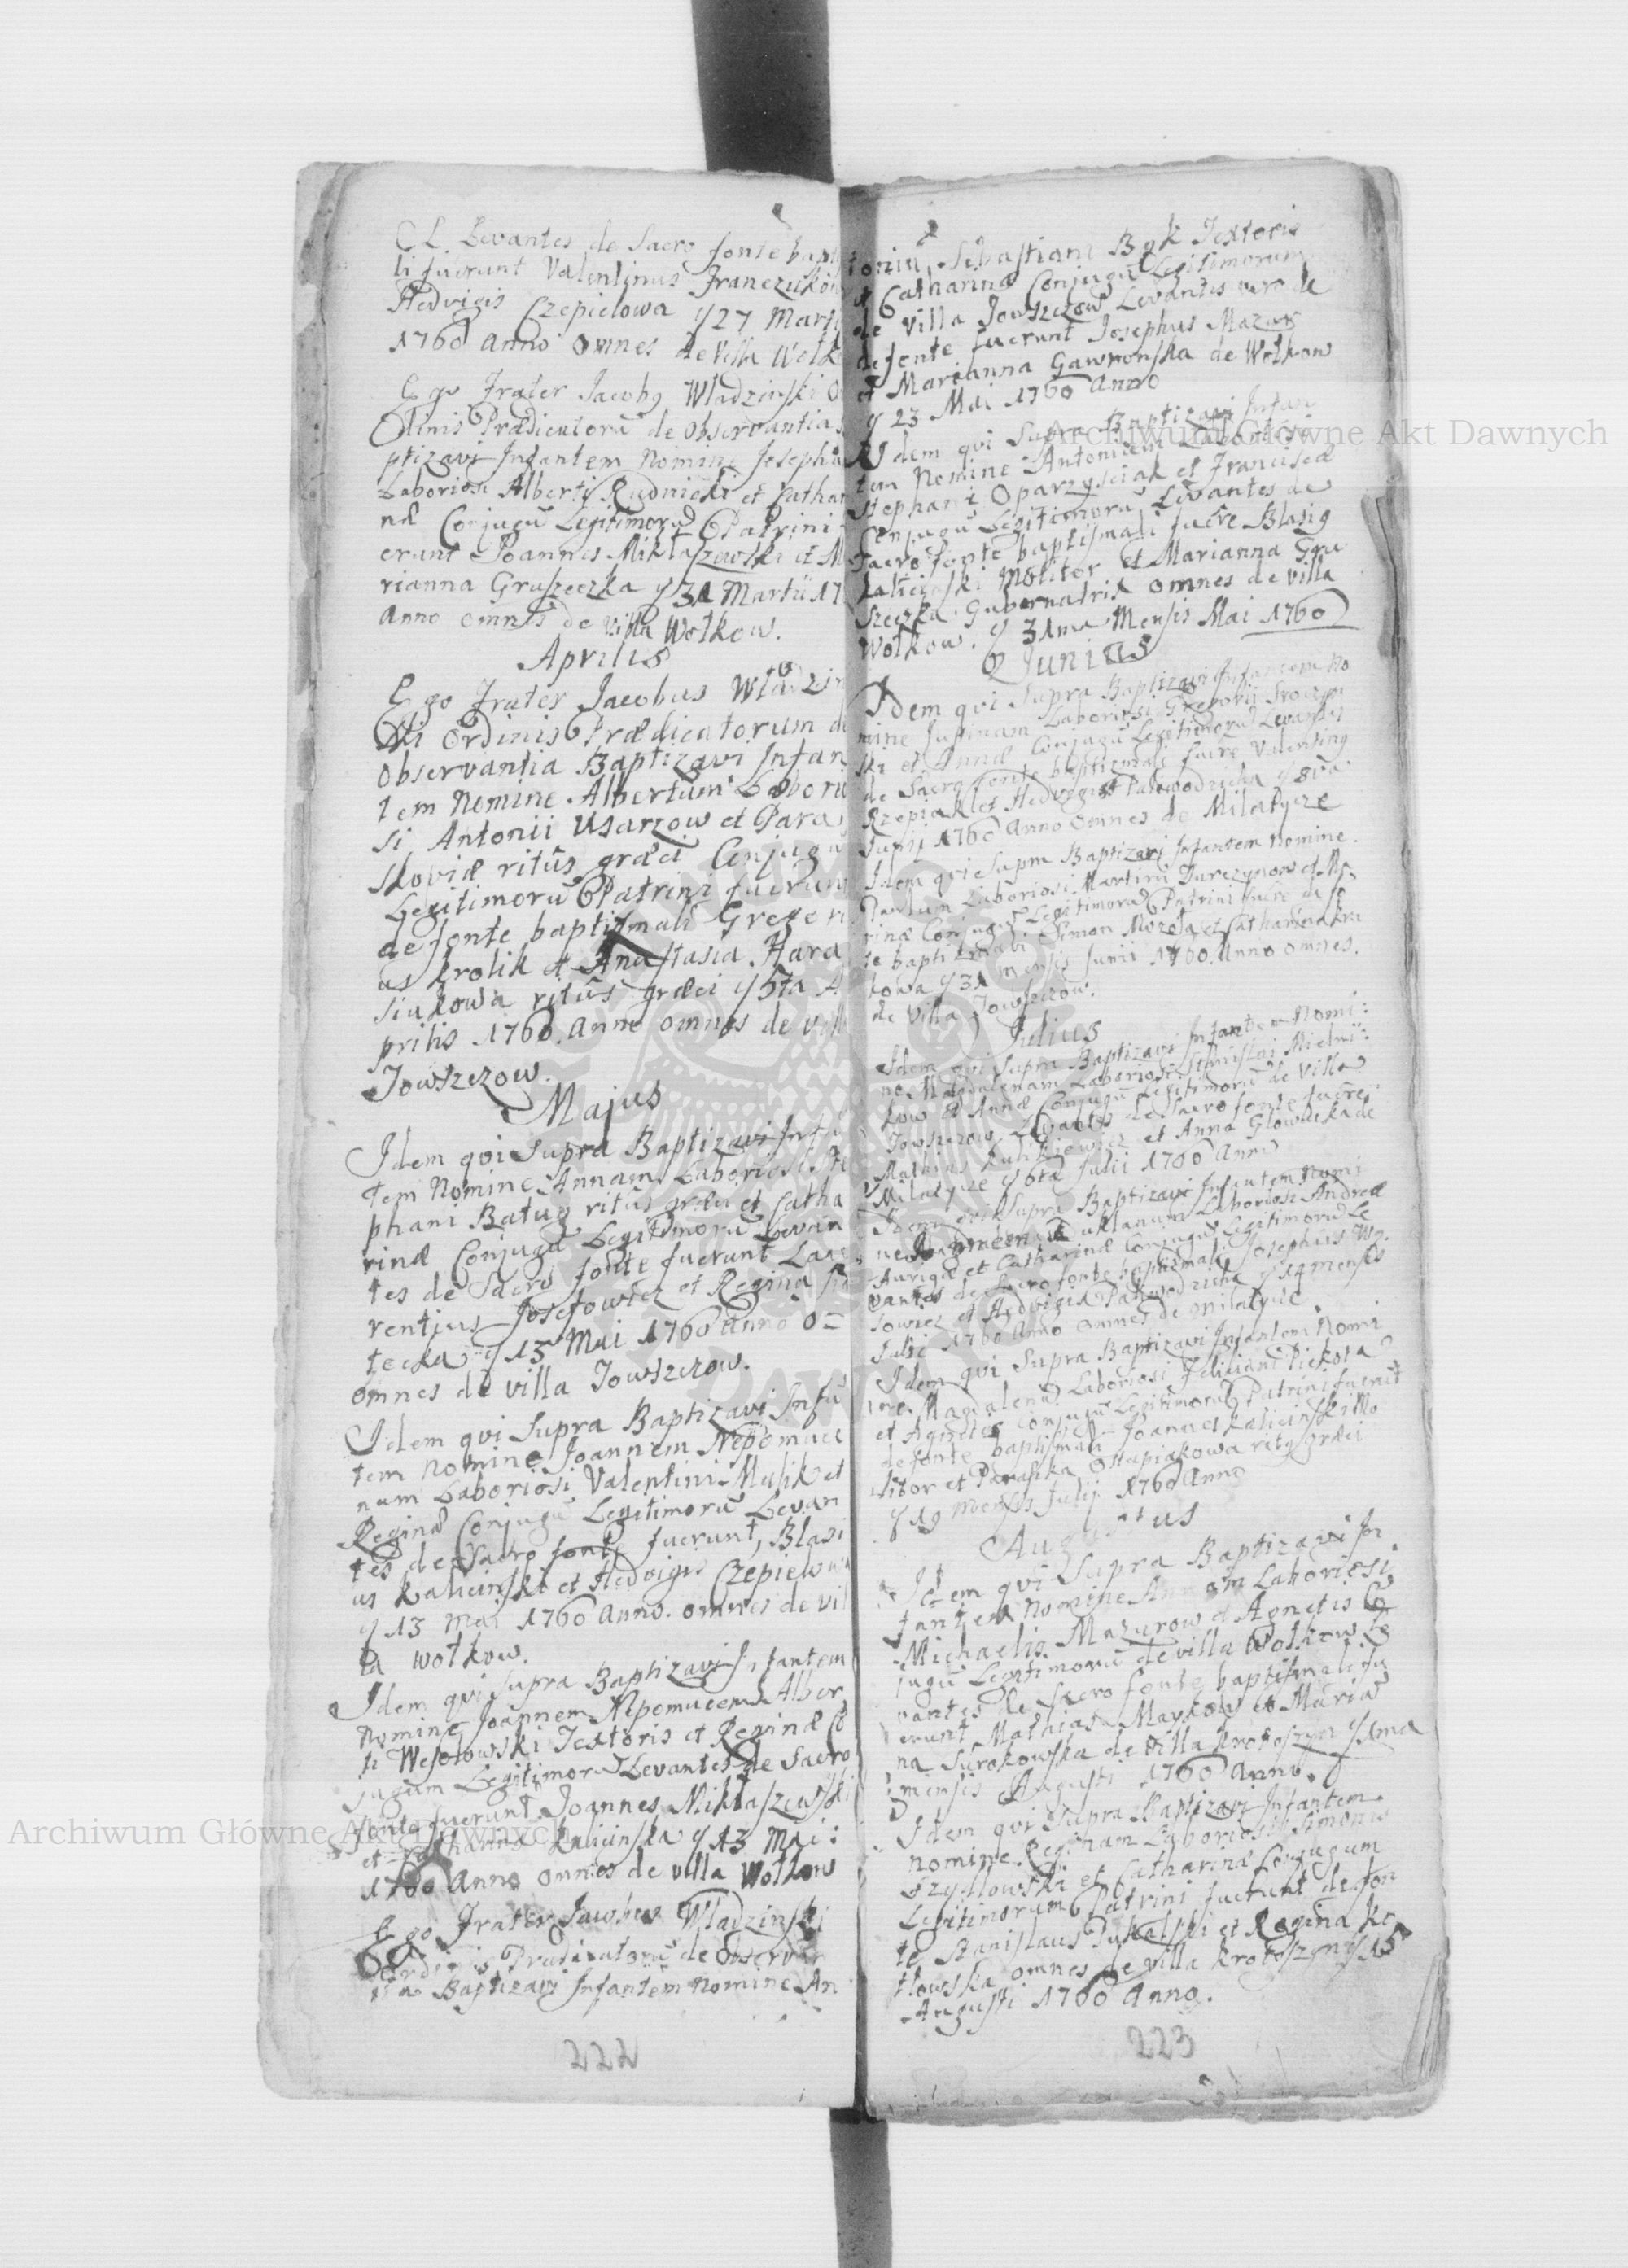 CL. Levantes de Sacro fonte bapt
li fuerunt Valentinus Franczukow
Hedvigis Czepielowa y 27 Martii
1760 Anno omnes de Villa Wolk
Ego Frater Jacobg Wladzinski Or
dinis Prædicatorũ de observantia
ptizavi Infantem Nomine Josephu
Laboriosi Alberti Rudnicki et Cathar
næ Conjugũ Legitimorũ Patrini
erunt Joannes Miktaszewski et M
rianna Gruszeczka y 31 Martii 17
Anno omnes de villa Wolkow.
Aprilis
Ego Frater Jacobus Wladzin
ski Ordinis Prædicatorum de
Observantia Baptizavi Infan
tem Nomine Albertum Laborio
si Antonii Usarzow et Para
skoviæ ritûs græci Conjugũ
Legitimorũ Patrini fuerunt
de fonte baptismali Gregori
us Krolik et Anastasia Hara
siukowa ritûs græci y 5ta A
prilis 1760. Anno omnes de vill
Jowszczow.
Majus
Idem qvi Supra Baptizavi Infa
tem Nomine Annam Laboriosi Ste
phani Batug ritûs græci et Catha
rinæ Conjugũ Legitimorũ Levan
tes de Sacro fonte fuerunt Lau
rentius Josefowicz et Regina
tecka y 13 Mai 1760 Anno o=
omnes de villa Jowszczow.
Idem qvi Supra Baptizavi Infa
tem Nomine Joannem Nepomuce
num Laboriosi Valentini Musik et
Reginæ Conjugũ Legitimorũ Levan
tes de Sacro fonte fuerunt, Blasi
us Kalicinski et Hedvigis Czepielowa
y 13 Mai 1760 Anno. omnes de vil
la Wolkow.
Idem qvi Supra Baptizavi Infantem
Nomine Joannem Nepomucem Alber
ti Wesolowski Textoris et Reginæ Co
jugum Legitimorũ Levantes de Sacro
fonte fuerunt Joannes Miktaszewski
et Catharina Kalicinska y 13 Mai:
1760 Anno omnes de villa Wolkow
Ego Frater Jacobus Wladzinski
Ordinis Prædicatorũ de observ
Baptizavi Infantem Nomine An
222
tonium, Sebastiani Bąk Textoris
et Catharinæ Conjugũ Legitimorum
de villa Jowszczow Levantes vero de
de fonte fuerunt Josephus Mazur
et Marianna Gawronska de Wolkow
y 23 Mai 1760 Anno
Idem qvi Supra Baptizavi Infan
tem Nomine Antonium Laboriosi
Stephani Oparzysciak et Franciscæ
Conjugũ Legitimorũ Levantes de
Sacro fonte baptismali fuêre Blasig
Kalicinski Molitor et Marianna Gru
szeczka Gubernatrix omnes de villa
Wolkow. y 31ma Mensis Mai 1760
Junius
Idem qvi Supra Baptizavi Infantem No
mine Justinam Laboriosi Gregorii Sroczyn
ski et Annæ Conjugũ Legitimorũ Levantes
de Sacro fonte baptizmali fuêre Valenting
Rzepiak et Hedvigis Paliwodzicha y 8va
Junii 1760 Anno omnes de Milatycze
Idem qvi Supra Baptizavi Infantem Nomine
Paulum Laboriosi Martini Durczynow et
rinæ Conjugũ Legitimorũ Patrini fuêre de fo
te baptizmali Simon Mozola et Catharina
kowa y 31 mensis Junii 1760. Anno omnes.
de villa Jowszczow.
Julius
Idem qvi Supra Baptizavi Infantem Nomi:
ne Magdalenam Laboriosi
kow et Annæ Conjugũ Legitimorũ de villa
Jowszczow Levantes de Sacro fonte fuêre
Mathias et Anna Glowacka de
Milatycze y 6ta Julii 1760 Anno
Idem qvi Supra Baptizavi Infantem Nomi
ne Laboriosi Andreæ
Aurigæ et Catharinæ Conjugũ Legitimorũ Le
vantes de Sacro fonte baptizmali Josephus
sowicz et Hedvigis Paliwodzicha y 14 mensis
Julii 1760 Anno omnes de Milatycze.
Idem qvi Supra Baptizavi Infantem Nomi
ne. Magdalenã Laboriosi Feliciani Piekora
et Agnetis Conjugũ Legitimorũ Patrini fuerũt
de fonte baptismali Joannes Kalicinski Mo
litor et Paraska Ostapiakowa ritg græci
y 19 Mensis Julii 1760 Anno
Augustus
Idem qvi Supra Baptizavi In
fantem Nomine Annam Laboriosi
Michaelis Mazurow et Agnetis Co
jugũ Legitimorũ de villa Wolkow Le
vantes de Sacro fonte baptismali fu
erunt Mathias Mayskow et Maria
na Surokowska de villa Krotoszyn y 1ma
mensis Augusti 1760 Anno.
Idem qvi Supra Baptizavi Infantem
nomine Reginam Laboriosi Simonis
Szydlowski et Catharinæ Conjugum
Legitimorum Patrini fuerunt de fon
te Stanislaus Pukalski et Regina Ko
tlowska omnes de villa Krotoszyn y 15
Augusti 1760 Anno.
223
Archiwum Główne Akt Dawnych
Archiwum Główne Akt Dawnych